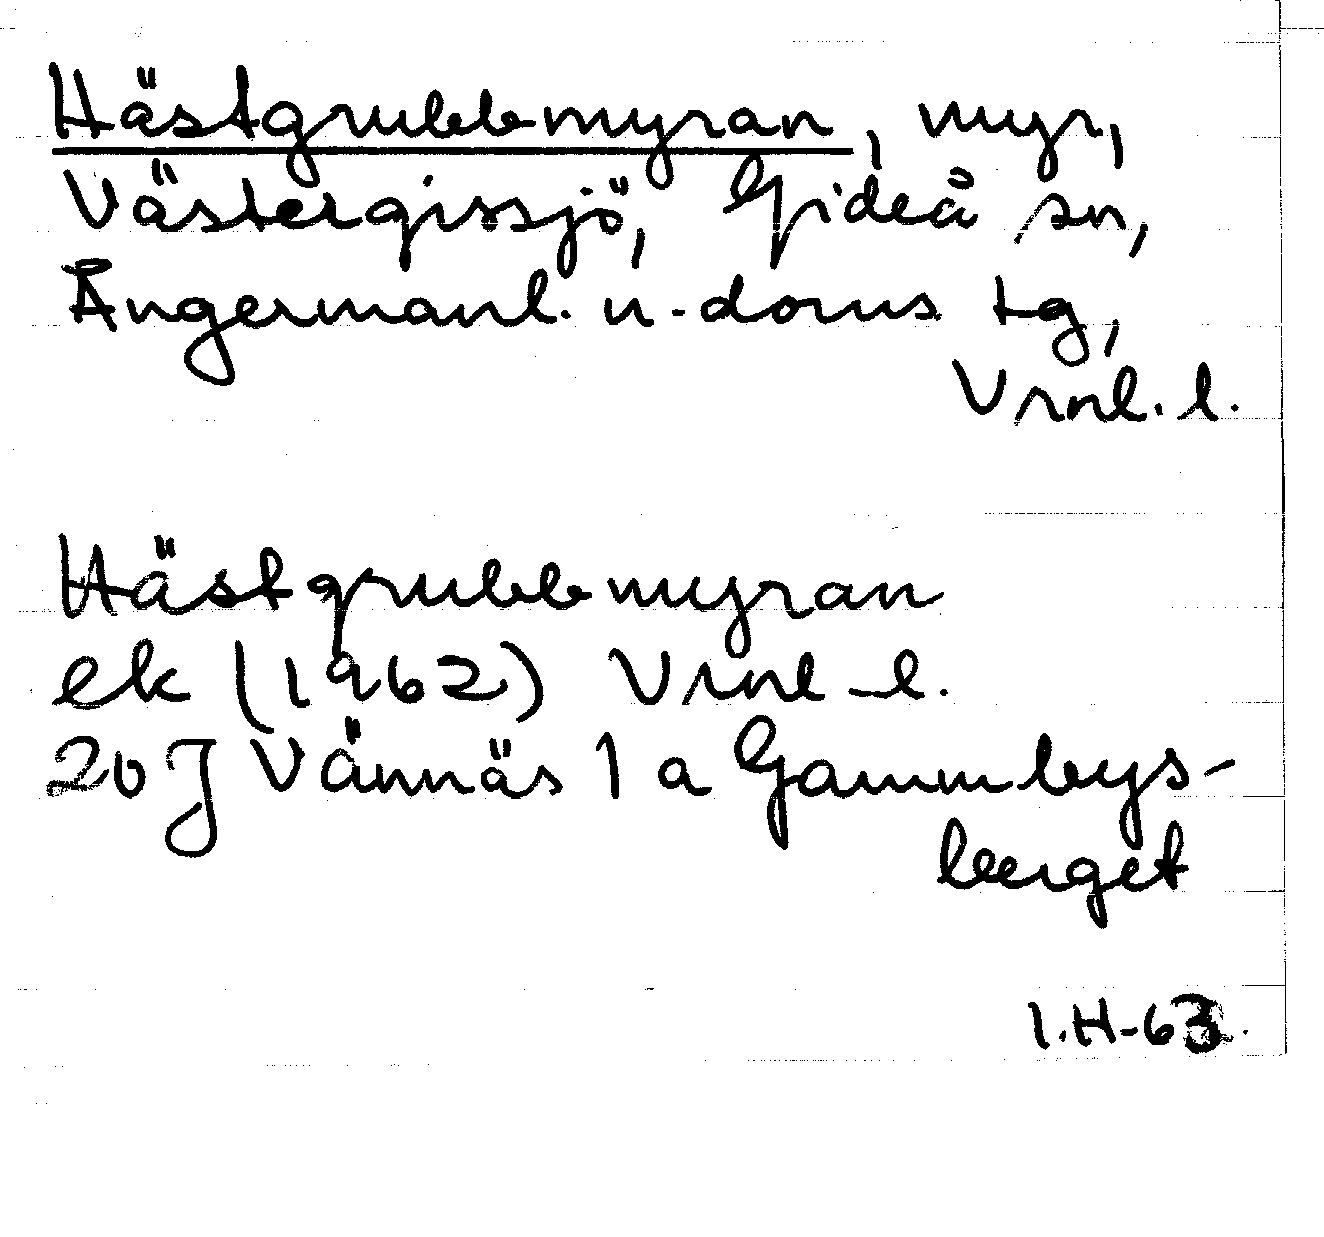 Hästgrubbmyran, myr,
Västergissjö, Gideå sn,
Ångermanl. n. doms tg,
Vrnl. l.
Hästgrubbmyran
ek (1962) Vrnl l.
20 J Vännäs 1 a Gammbys-
berget
I.H-63.